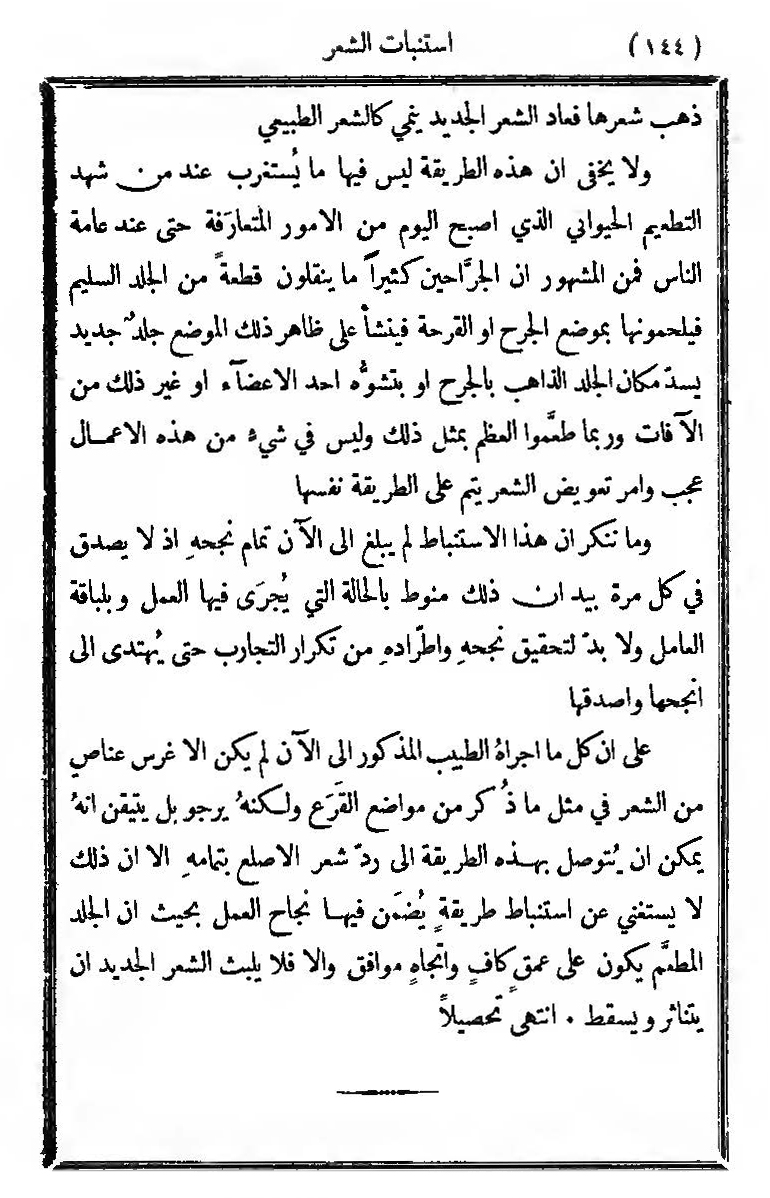 (١٤٤) استنبات الشعر
ذهب شعرها فعاد الشعر الجديد ينمي كالشعر الطبيعي
ولا يخفى ان هذه الطريقة ليس فيها ما يُستغرب عند من شهد
التطعيم الحيواني الذي اصبح اليوم من الامور المتعارَفة حتى عند عامة
الناس فمن المشهور ان الجرَّاحين كثيراً ما ينقلون قطعةً من الجلد السليم
فيلحمونها بموضع الجرح او القرحة فينشأ على ظاهر ذلك الموضع جلدٌ جديد
يسدّ مكان الجلد الذاهب بالجرح او بتشوُّه احد الاعضآء او غير ذلك من
الآفات وربما طعَّموا العظم بمثل ذلك وليس في شيء من هذه الاعمال
عجب وامر تعويض الشعر يتم على الطريقة نفسها
وما ننكر ان هذا الاستنباط لم يبلغ الى الآن تمام نجحهِ اذ لا يصدق
في كل مرة بيد ان ذلك منوط بالحالة التي يُجرَى فيها العمل وبلباقة
العامل ولا بدّ لتحقيق نجحهِ واطّرادهِ من تكرار التجارب حتى يُهتدى الى
انجحها واصدقها
على ان كل ما اجراهُ الطبيب المذكور الى الآن لم يكن الا غرس عناصٍ
من الشعر في مثل ما ذُكر من مواضع القَرَع ولكنهُ يرجو بل يتيقن انهُ
يمكن ان يُتوصل بهذه الطريقة الى ردّ شعر الاصلع بتمامهِ الا ان ذلك
لا يستغني عن استنباط طريقةٍ يُضمَن فيها نجاح العمل بحيث ان الجلد
المطعَّم يكون على عمقٍ كافٍ واتجاهٍ موافق والا فلا يلبث الشعر الجديد ان
يتناثر ويسقط . انتهى تحصيلاً